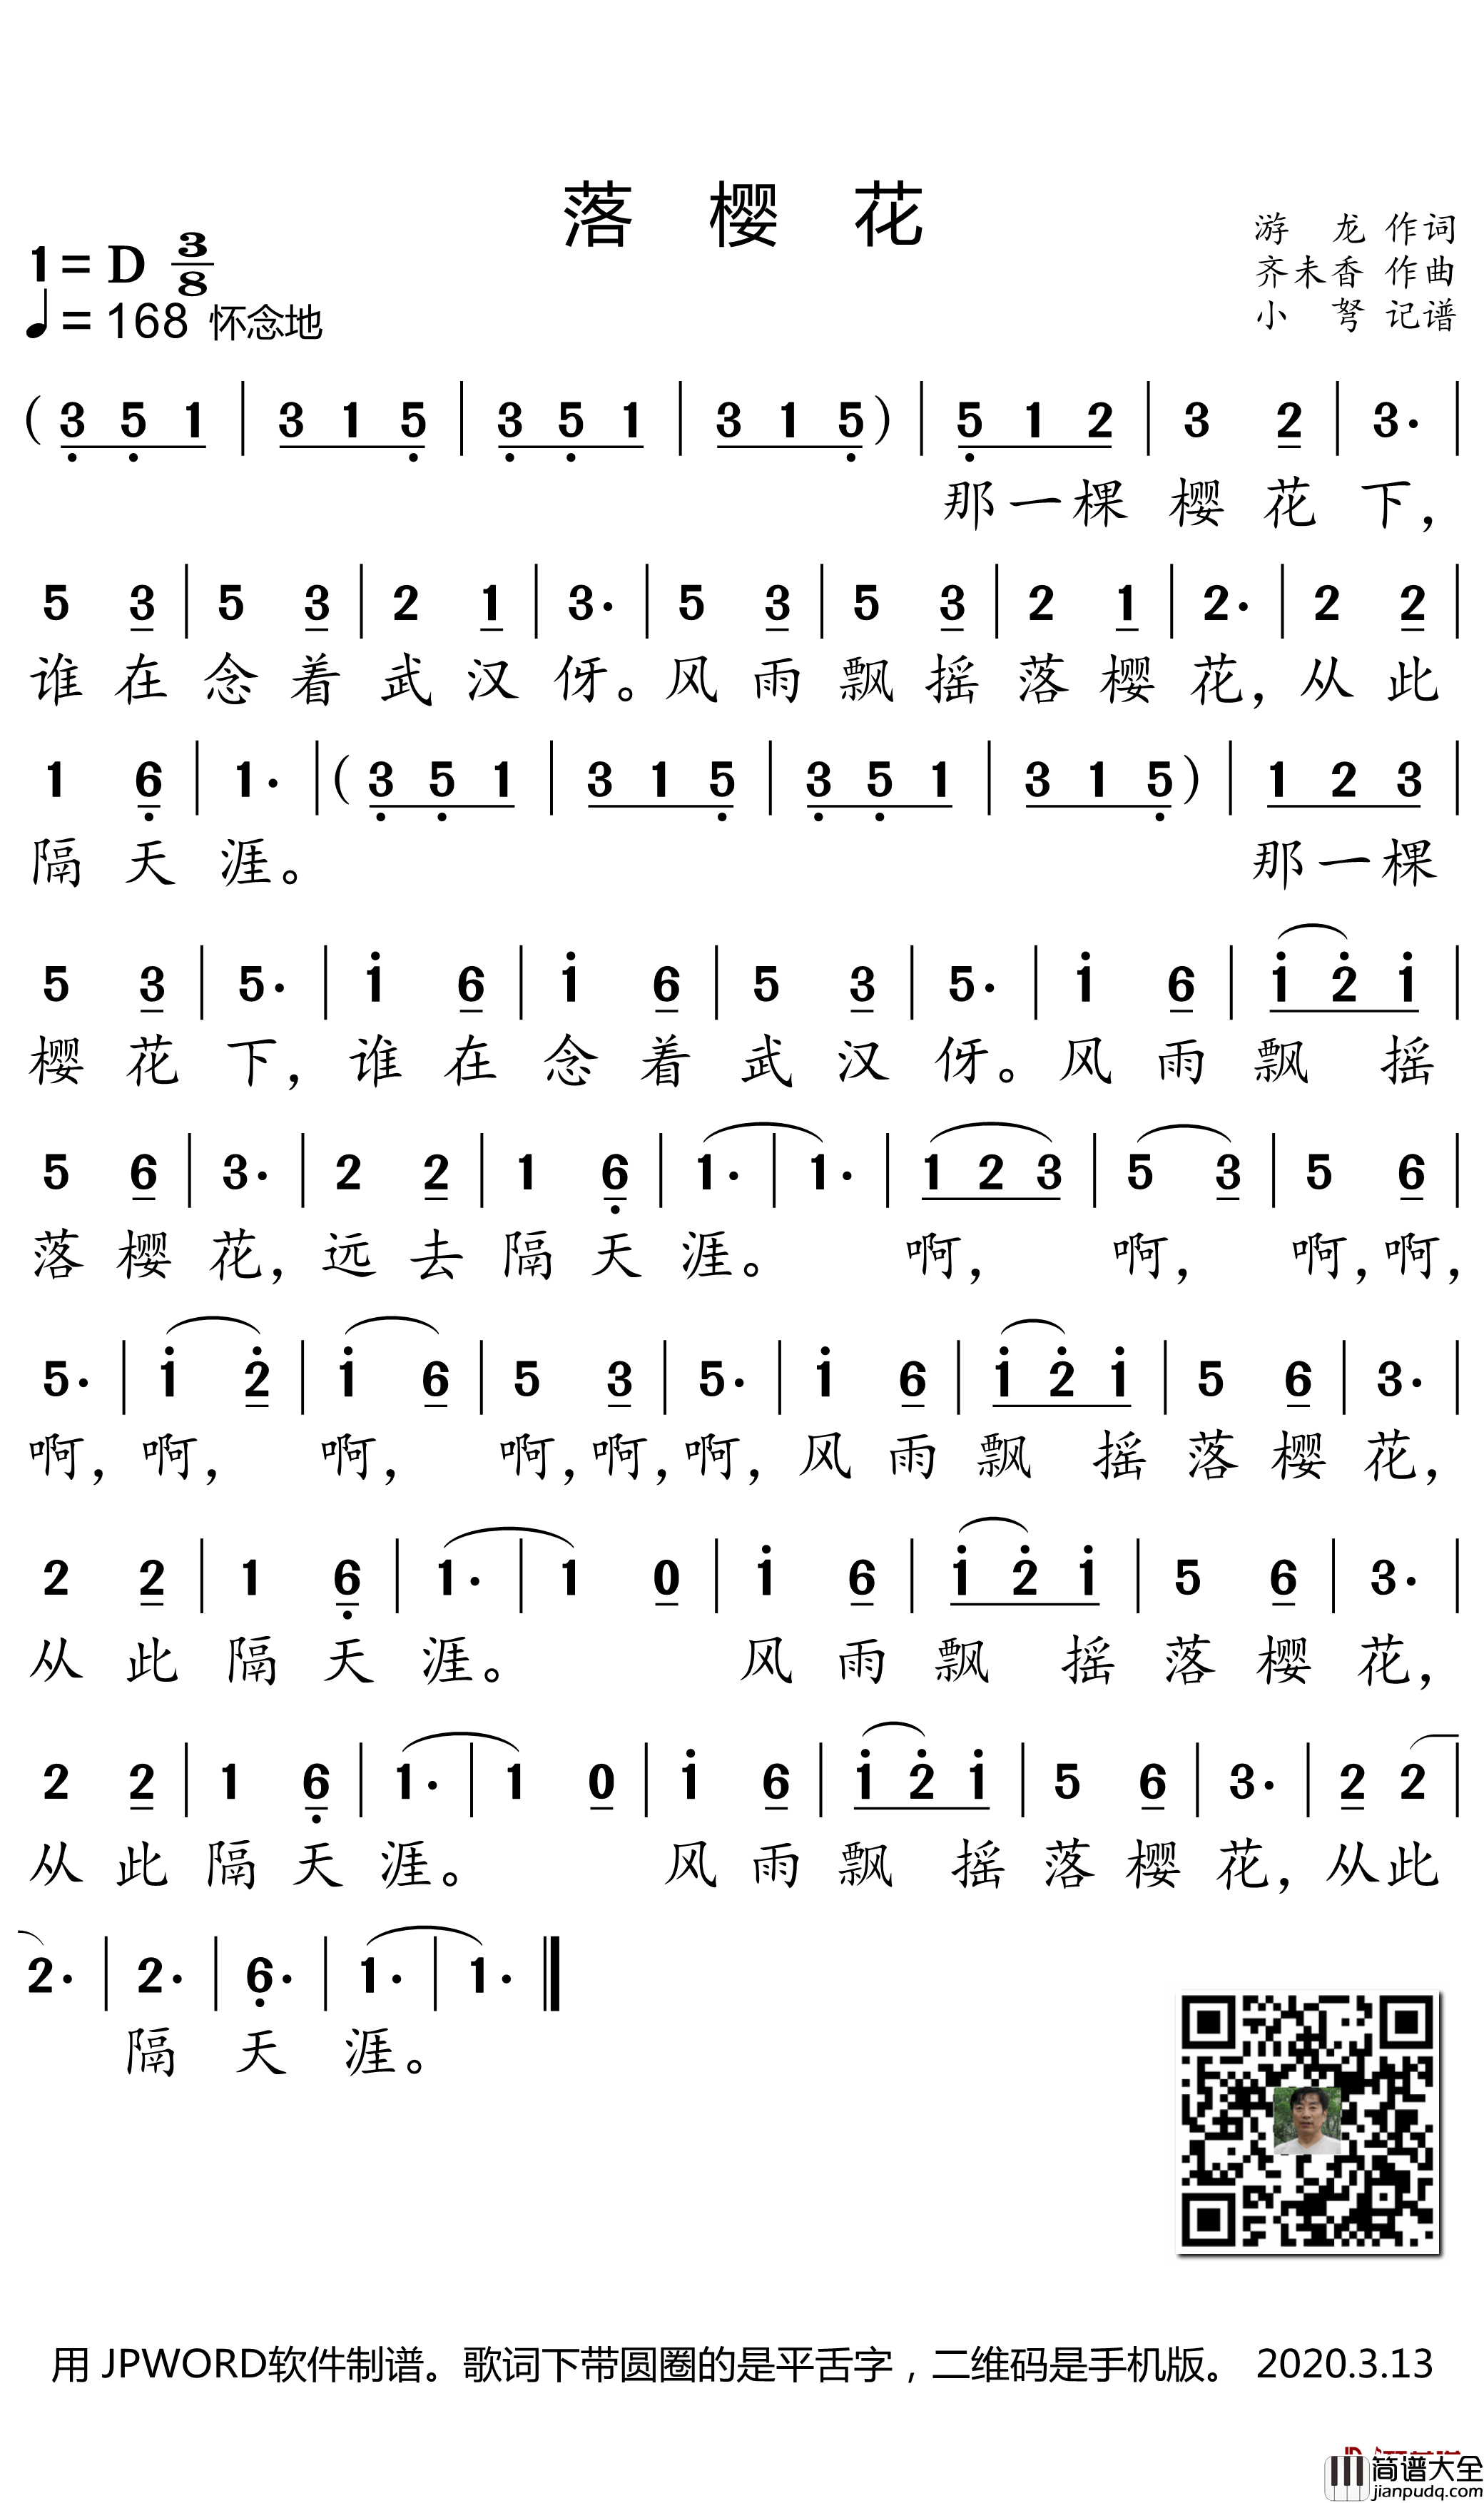 落 樱 花
游 龙 作词
齐未香 作曲
小 弩 记谱
1=D 3/8
♩=168 怀念地
(3 5 1 | 3 1 5 | 3 5 1 | 3 1 5) | 5 1 2 | 3 2 | 3· |
那一棵 樱 花 下，
5 3 | 5 3 | 2 1 | 3· | 5 3 | 5 3 | 2 1 | 2· | 2 2 |
谁 在 念 着 武 汉 伢。风 雨 飘 摇 落 樱 花，从 此
1 6 | 1· | (3 5 1 | 3 1 5 | 3 5 1 | 3 1 5) | 1 2 3 |
隔 天 涯。 那一棵
5 3 | 5· | 1 6 | 1 6 | 5 3 | 5· | 1 6 | 1 2 1 |
樱 花 下，谁 在 念 着 武 汉 伢。风 雨 飘 摇
5 6 | 3· | 2 2 | 1 6 | 1· | 1· | 1 2 3 | 5 3 | 5 6 |
落 樱 花，远 去 隔 天 涯。 啊， 啊， 啊，啊，
5· | 1 2 | 1 6 | 5 3 | 5· | 1 6 | 1 2 1 | 5 6 | 3· |
啊，啊， 啊， 啊，啊，啊，风 雨 飘 摇 落 樱 花，
2 2 | 1 6 | 1· | 1 0 | 1 6 | 1 2 1 | 5 6 | 3· |
从 此 隔 天 涯。 风 雨 飘 摇 落 樱 花，
2 2 | 1 6 | 1· | 1 0 | 1 6 | 1 2 1 | 5 6 | 3· | 2 2 |
从 此 隔 天 涯。 风 雨 飘 摇 落 樱 花，从此
2· | 2· | 6· | 1· | 1· ‖
隔 天 涯。
用 JPWORD软件制谱。歌词下带圆圈的是平舌字，二维码是手机版。 2020.3.13
简谱大全
jianpudq.com